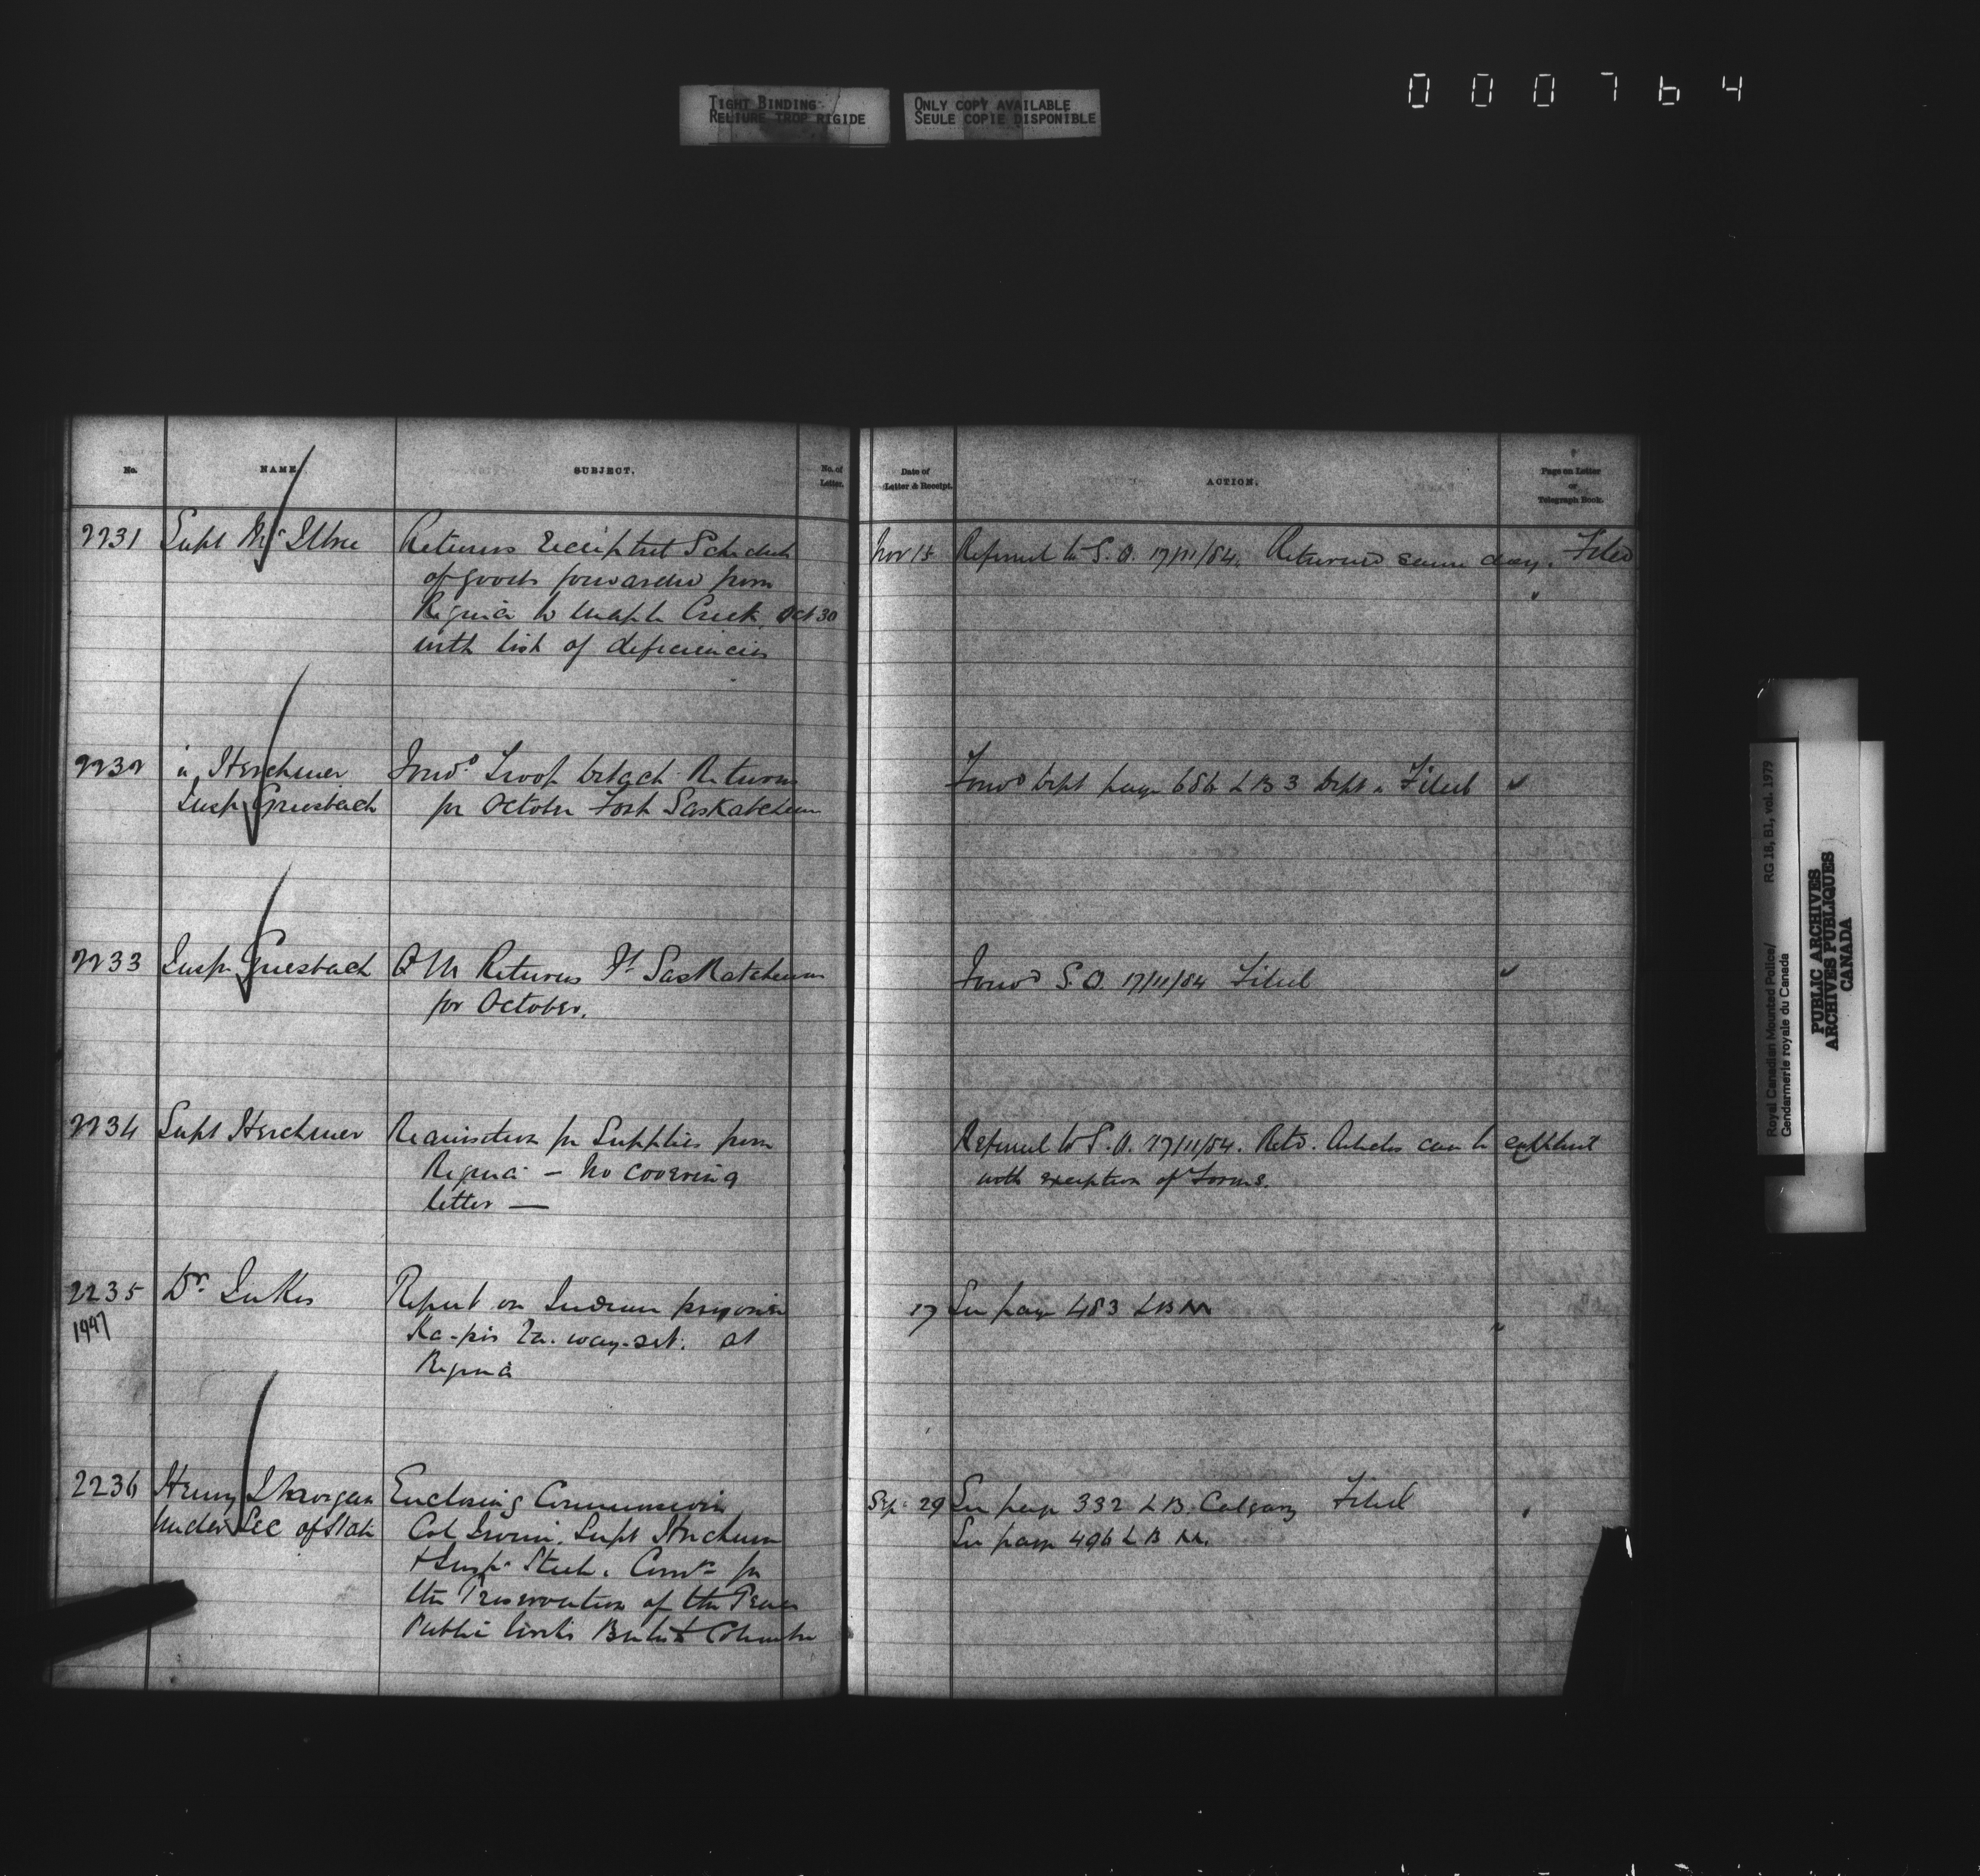 TIGHT BINDING
RELIURE TROP RIGIDE
ONLY COPY AVAILABLE
SEULE COPIE DISPONIBLE
000764
No. NAME. SUBJECT. No. of Letter.
Date of Letter & Receipt. ACTION. Page on Letter or Telegraph Book.
2231 Supt McIllree Returns receipted Schedule
of goods forwarded from
Regina to Maple Creek Oct 30
with list of deficiencies
Nov 15 Referred to S.O. 17/11/84. Returned same day. Filed
2232 " Herchmer Forwd. Troop Returns
Insp Griesbach for October Fort Saskatchewan
Forwd Dept page 686 LB 3 Dept Filed
2233 Insp Griesbach Q M Returns Ft Saskatchewan
for October.
Forwd S.O. 17/11/84 Filed
2234 Supt Herchmer Requisition for Supplies from
Regina — No covering
letter —
Referred to S.O. 17/11/84. Retd. Articles can be
with exception of Forms.
2235 Dr. Jukes Report on Indian prisoner
1997 Ka-pis way-set. at
Regina
17 See page 483 LB M
2236 Henry J Morgan Enclosing Commissions
Under Sec of State Col Irvine, Supt Herchmer
+ Insp. Steele. for
the Preservation of the Peace
Public Works British Columbia
Sep. 29 See page 332 LB. Calgary Filed
See page 496 LB M.
Royal Canadian Mounted Police/ RG 18, B1, vol. 1979
Gendarmerie royale du Canada
PUBLIC ARCHIVES
ARCHIVES PUBLIQUES
CANADA